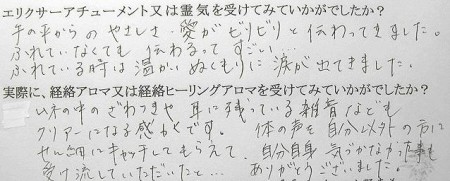 エリクサーアチューメント又は霊気を受けてみていかがでしたか？
手の平からのやさしさ・愛がビリビリと伝わってきました。
ふれていなくても伝わるってすごい…。
ふれている時は温かいぬくもりに涙が出てきました。
実際に、経絡アロマ又は経絡ヒーリングアロマを受けてみていかがでしたか？
心の中のざわつきや耳に残っている雑音なども
クリアーになる感かくです。体の声を自分以外の方に
せん細にキャッチしてもらえて、自分自身気づかない事も
受け流していただいたと…ありがとうございました